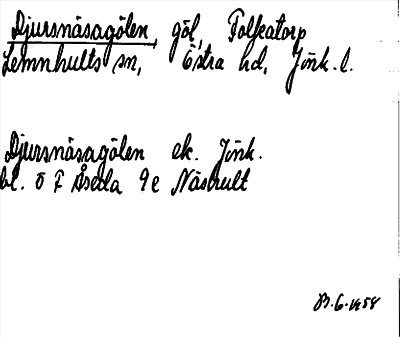 Djursnäsagölen, göl, Folkatorp
Lemnhults sn, Östra hd, Jönk. l.
Djursnäsagölen ek. Jönk.
bl. Ö F Åseda 9e Näshult
B.G. 1958